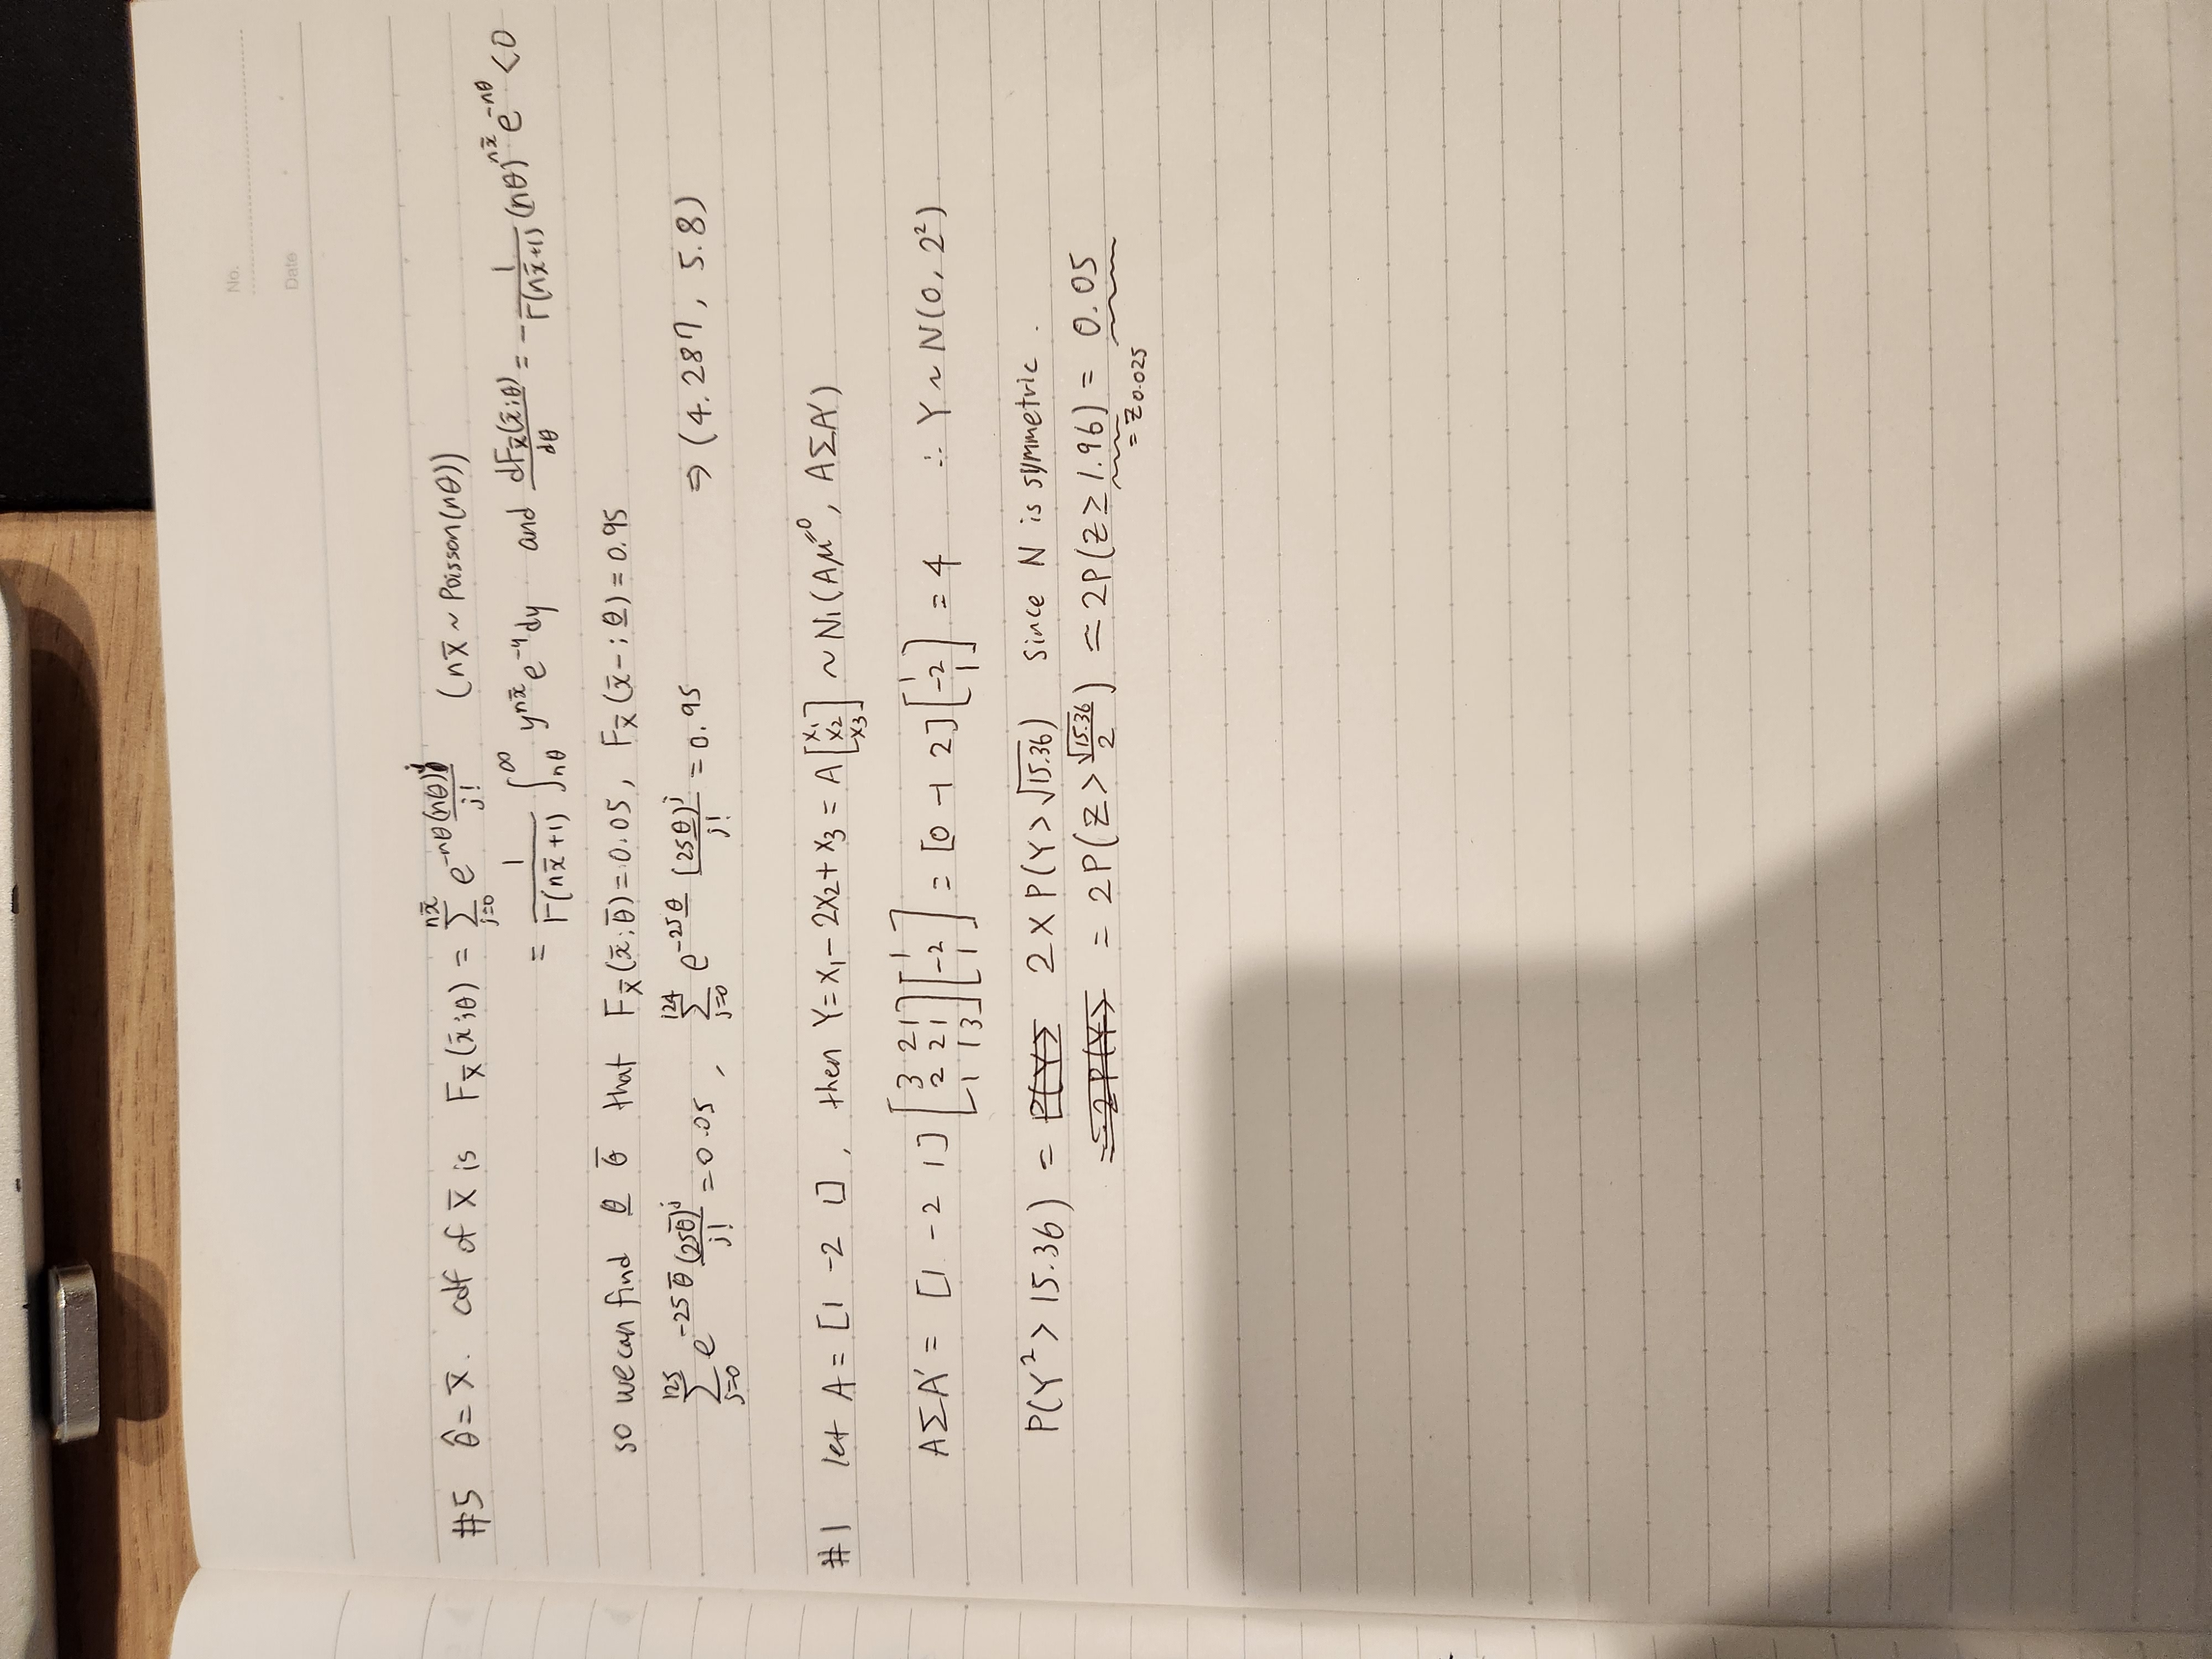 No.
Date
#5 θ̂ = x̄. cdf of X̄ is F_X̄(x̄;θ) = Σ_{j=0}^{nx̄} e^{-nθ} (nθ)^j / j! (nX̄ ~ Poisson(nθ))
= 1/Γ(nx̄+1) ∫_{nθ}^{∞} y^{nx̄} e^{-y} dy and dF_X̄(x̄;θ)/dθ = - 1/Γ(nx̄+1) (nθ)^{nx̄} e^{-nθ} < 0
so we can find θ̲ θ̄ that F_X̄(x̄;θ̄) = 0.05, F_X̄(x̄-;θ̲) = 0.95
Σ_{j=0}^{125} e^{-25θ̄} (25θ̄)^j / j! = 0.05, Σ_{j=0}^{124} e^{-25θ̲} (25θ̲)^j / j! = 0.95 ⇒ (4.287, 5.8)
#1 let A = [1 -2 1], then Y = X₁ - 2X₂ + X₃ = A [X₁ X₂ X₃] ~ N₁(Aμ⁰, AΣA')
AΣA' = [1 -2 1] [3 2 1; 2 2 1; 1 1 3] [1 -2 1] = [0 -1 2] [1 -2 1] = 4 ∴ Y ~ N(0, 2²)
P(Y² > 15.36) = 2 × P(Y > √15.36) since N is symmetric.
= 2P(Z > √15.36 / 2) = 2P(Z ≥ 1.96) = 0.05
= z_{0.025}